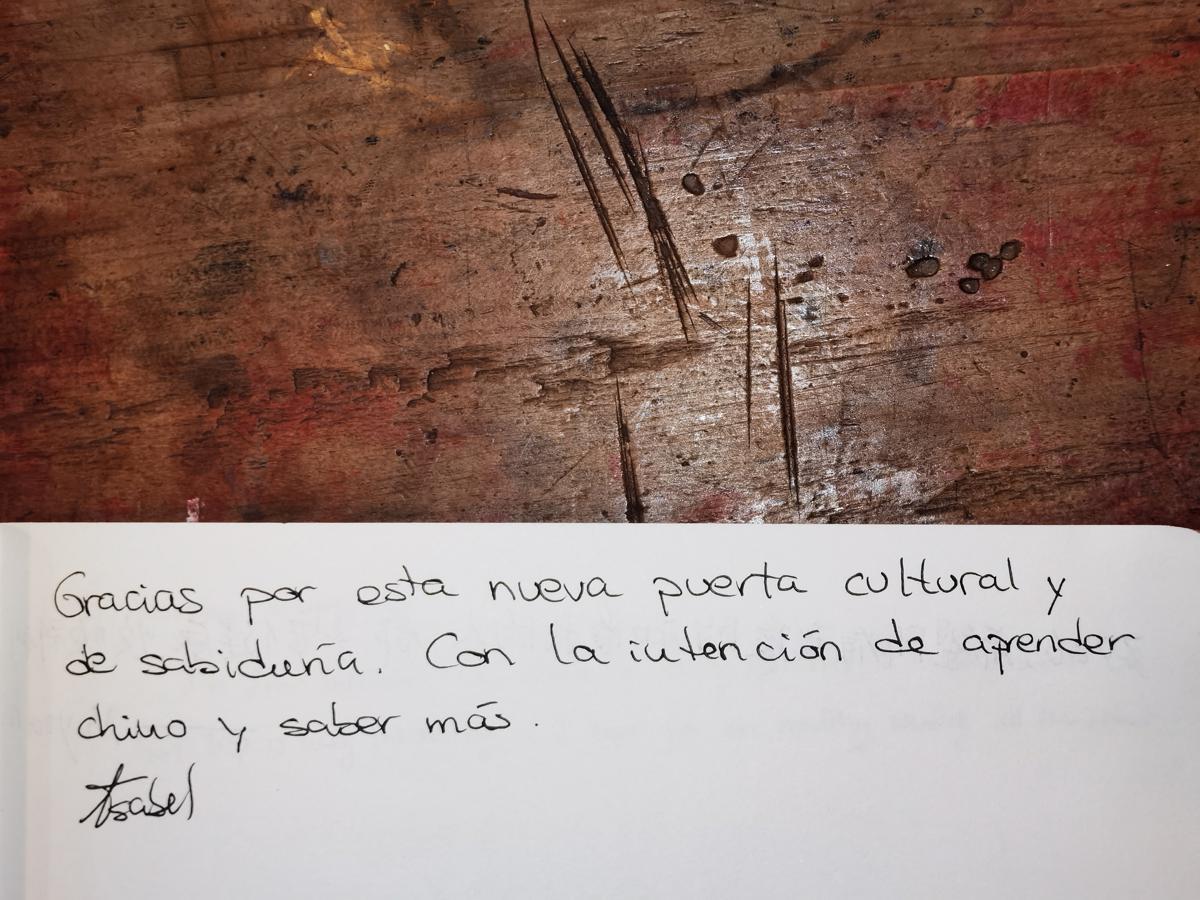 Gracias por esta nueva puerta cultural y
de sabiduría. Con la intención de aprender
chino y saber más.
Isabel